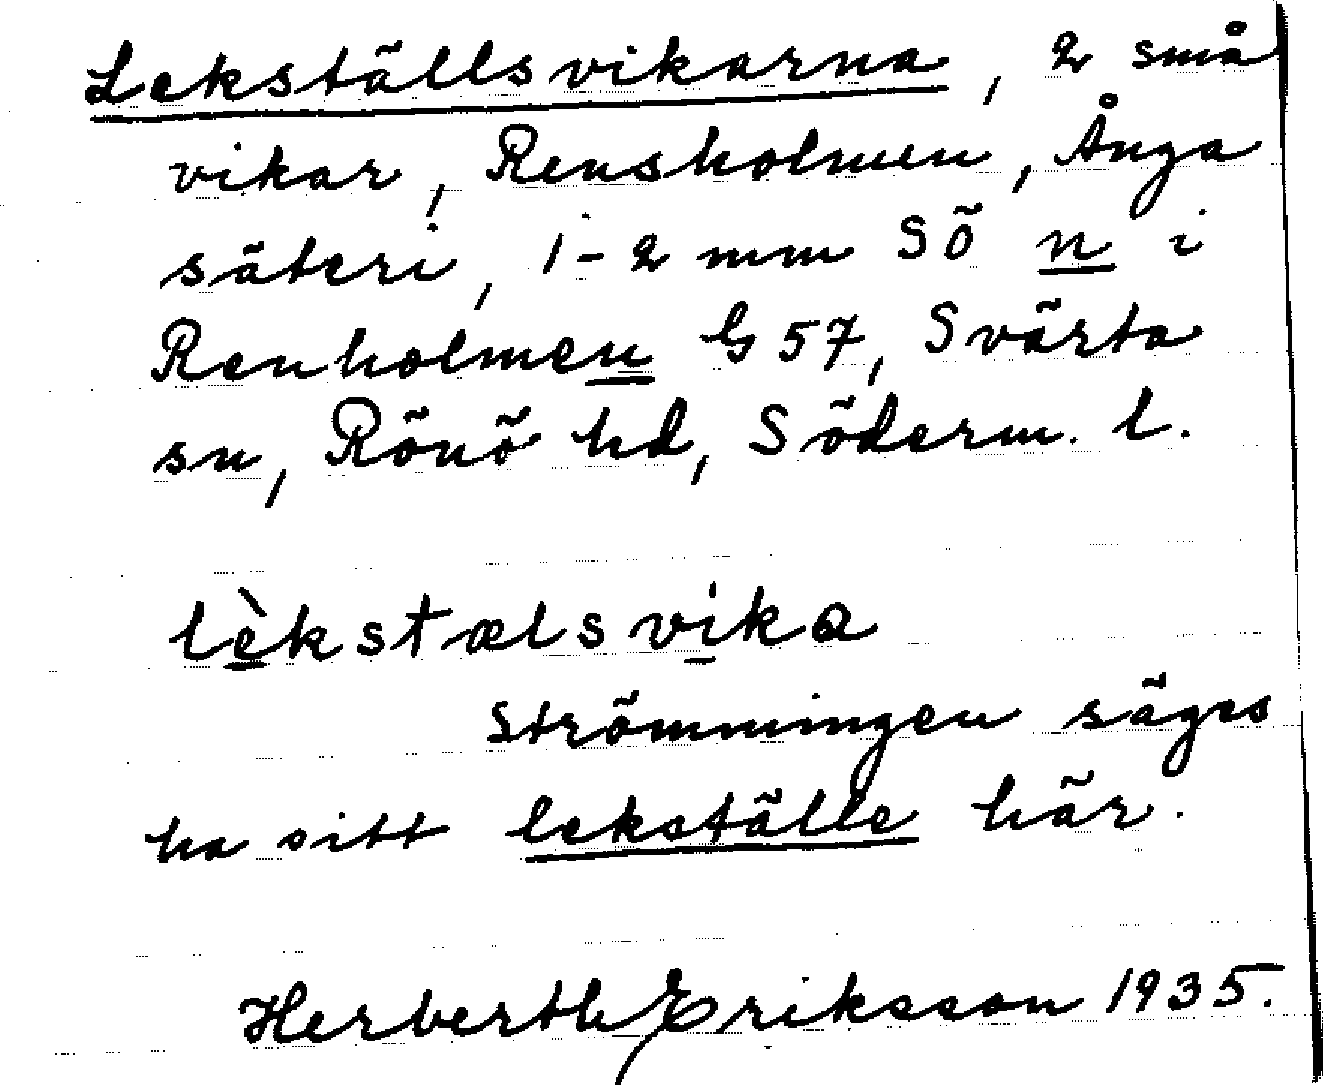 Lekställsvikarna, 2 små
vikar, Rensholmen, Ånga
säteri, 1-2 mm SÖ n i
Renholmen G 57, Svärta
sn, Rönö hd, Söderm. l.
lèkstælsvika
Strömmingen säges
ha sitt lekställe här.
Herberth Eriksson 1935.